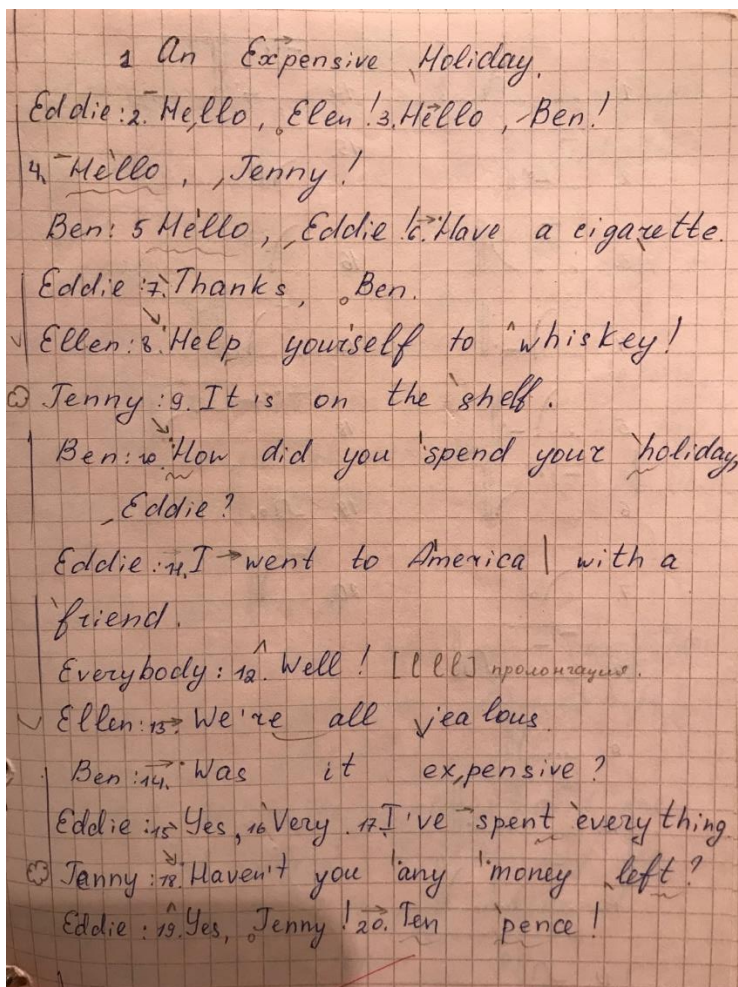 1 An Expensive Holiday.
Eddie: 2. Hello, Elen! 3. Hello, Ben!
4. Hello, Jenny!
Ben: 5 Hello, Eddie! 6. Have a cigarette.
Eddie: 7. Thanks, Ben.
Ellen: 8. Help yourself to whiskey!
Jenny: 9. It is on the shelf.
Ben: 10. How did you spend your holiday,
Eddie?
Eddie: 11. I went to America | with a
friend.
Everybody: 12. Well! [l l l] пролонгация.
Ellen: 13. We're all jealous.
Ben: 14. Was it expensive?
Eddie: 15 Yes, 16 Very. 17. I've spent everything
Janny: 18. Haven't you any money left?
Eddie: 19. Yes, Jenny! 20. Ten pence!